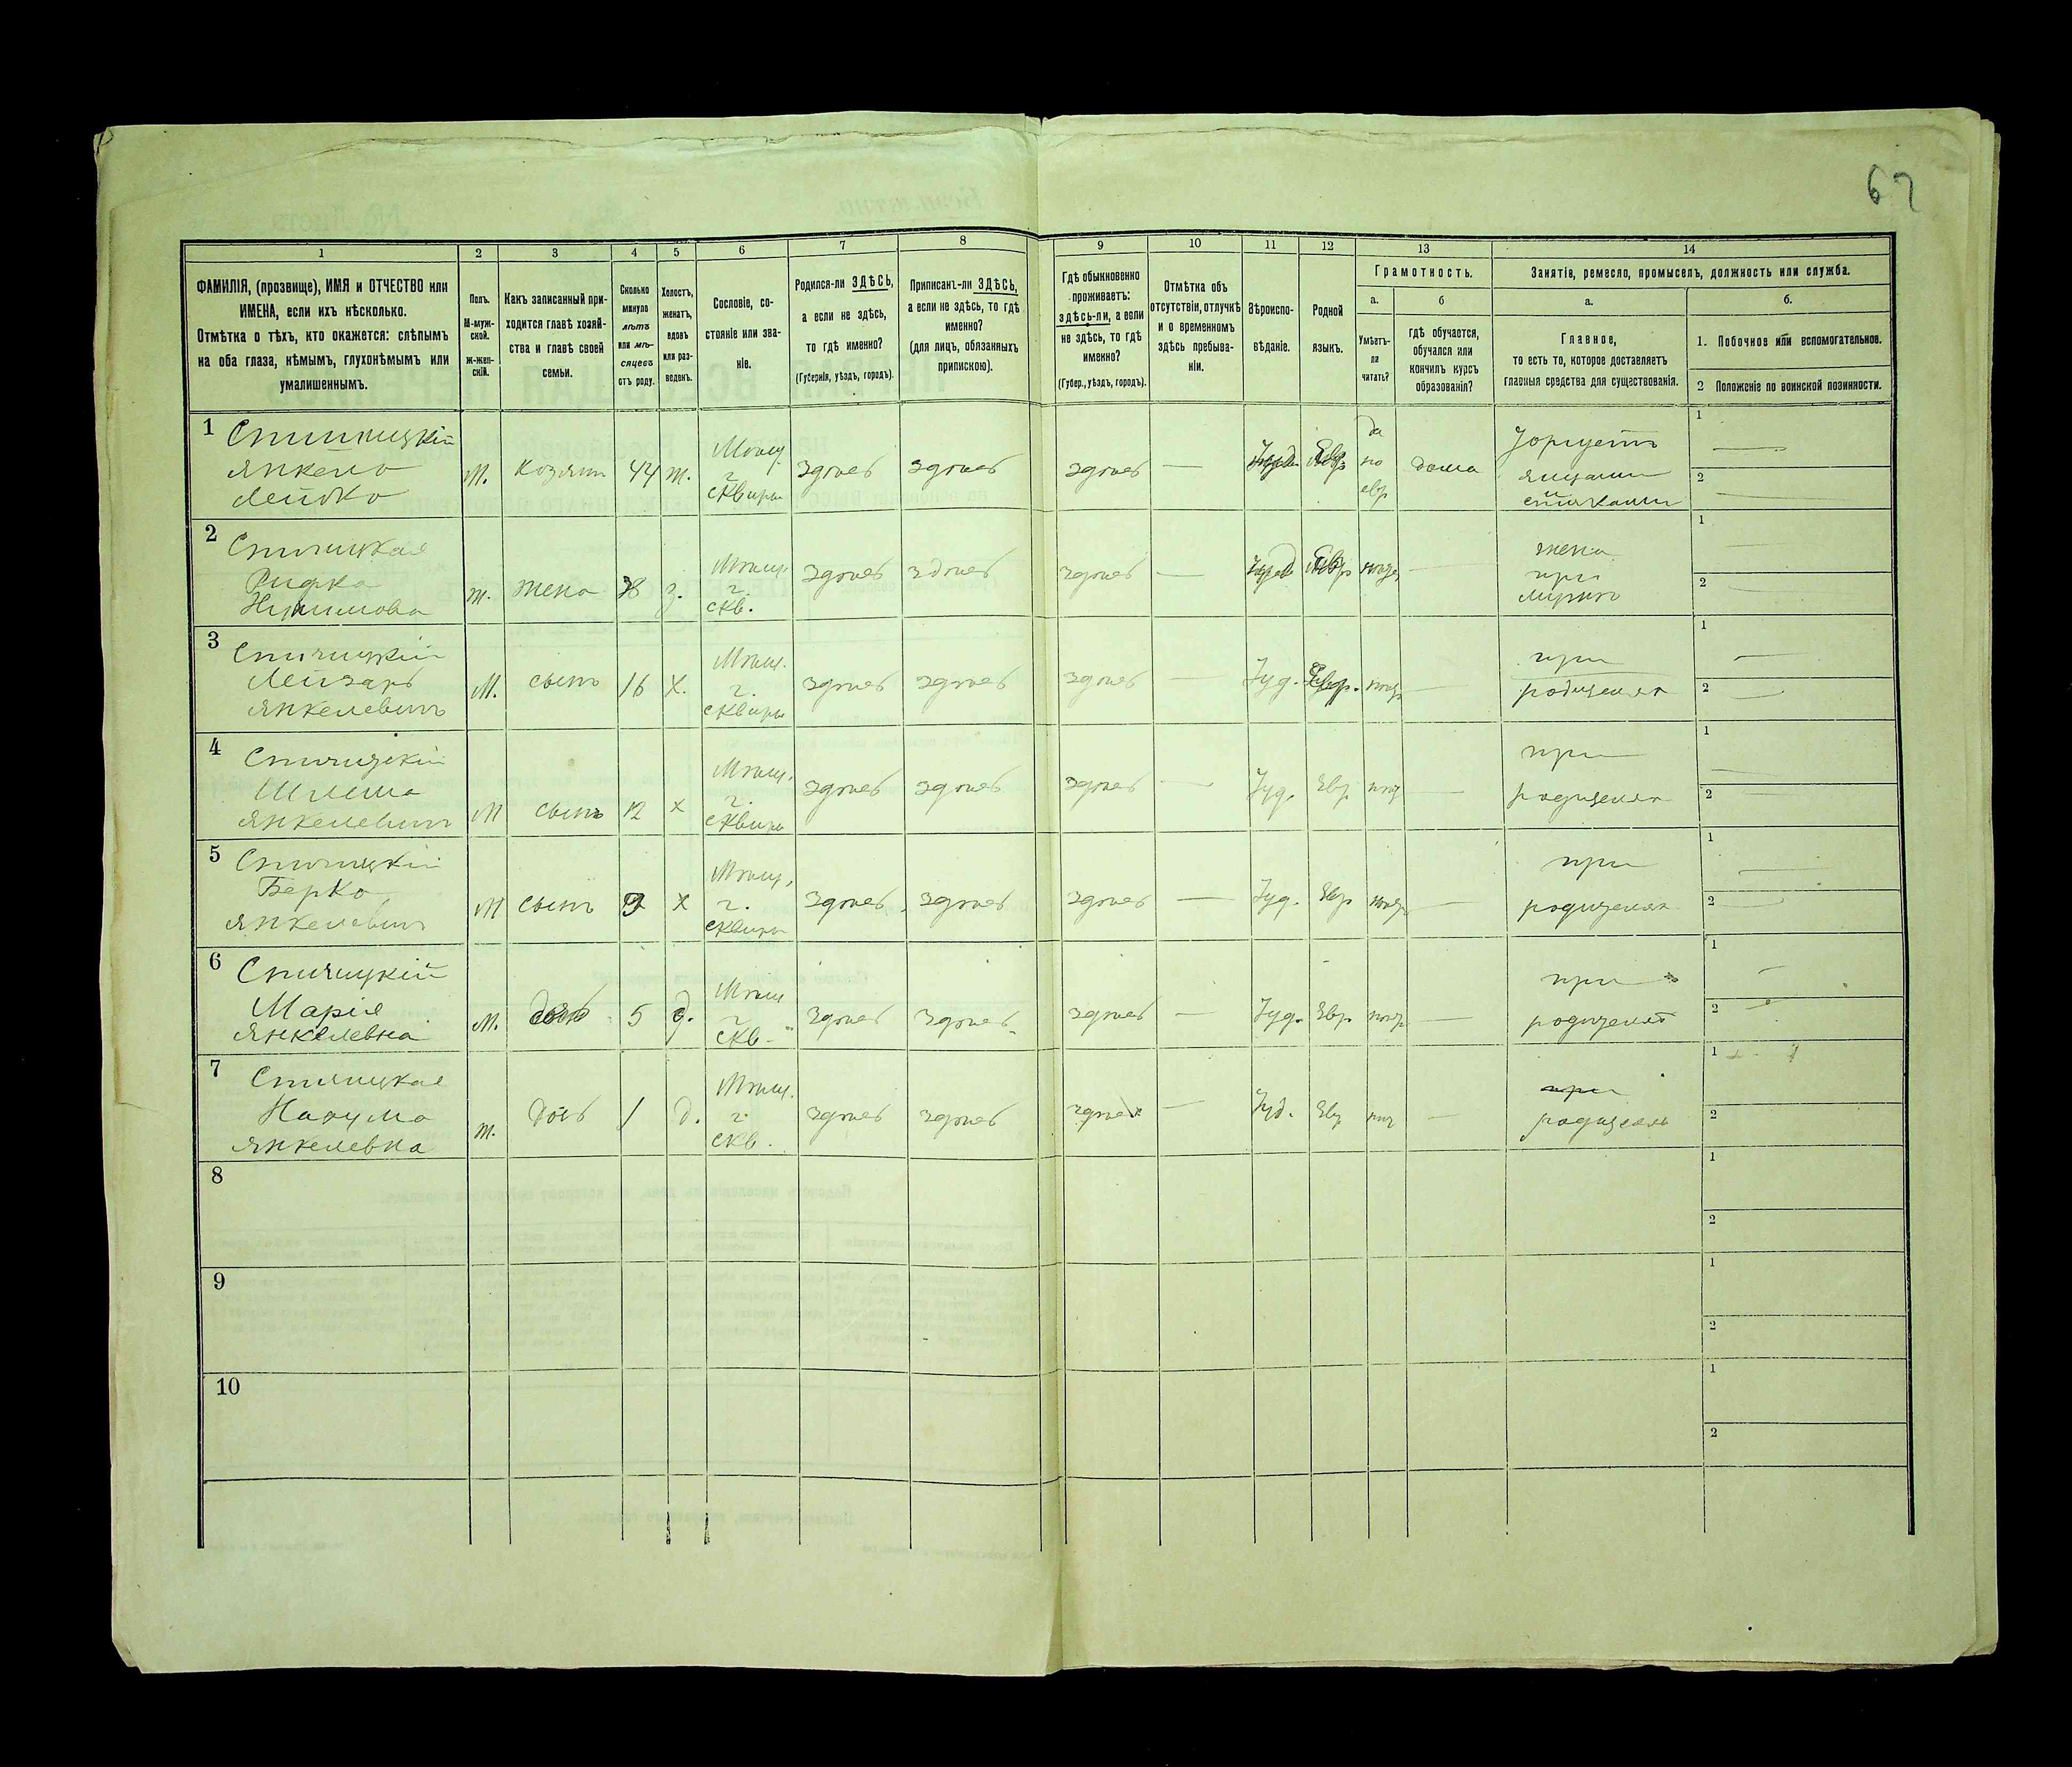 67
1 2 3 4 5 6 7 8 9 10 11 12 13 14
ФАМИЛІЯ, (прозвище), ИМЯ и ОТЧЕСТВО или
ИМЕНА, если ихъ нѣсколько.
Отмѣтка о тѣхъ, кто окажется: слѣпымъ
на оба глаза, нѣмымъ, глухонѣмымъ или
умалишеннымъ.
Полъ.
М-муж-
ской.
Ж-жен-
скій.
Какъ записанный при-
ходится главѣ хозяй-
ства и главѣ своей
семьи.
Сколько
минуло
лѣтъ
или мѣ-
сяцевъ
отъ роду.
Холостъ,
женатъ,
вдовъ
или раз-
веденъ.
Сословіе, со-
стояніе или зва-
ніе.
Родился-ли ЗДѢСЬ,
а если не здѣсь,
то гдѣ именно?
(Губернія, уѣздъ, городъ).
Приписанъ-ли ЗДѢСЬ,
а если не здѣсь, то гдѣ
именно?
(для лицъ, обязанныхъ
припискою).
Гдѣ обыкновенно
проживаетъ:
здѣсь-ли, а если
не здѣсь, то гдѣ
именно?
(Губер., уѣздъ, городъ).
Отмѣтка объ
отсутствіи, отлучкѣ
и о временномъ
здѣсь пребыва-
ніи.
Вѣроиспо-
вѣданіе.
Родной
языкъ.
Грамотность.
а.
Умѣетъ-
ли
читать?
б
гдѣ обучается,
обучался или
кончилъ курсъ
образованія?
Занятія, ремесло, промыселъ, должность или служба.
а.
Главное,
то есть то, которое доставляетъ
главныя средства для существованія.
б.
1. Побочное или вспомогательное.
2 Положеніе по воинской повинности.
1 Спичицкій
Янкель
Лейбко
М. Хозяинъ 44 ж.
Мѣщ.
г.
Сквиры
здѣсь здѣсь здѣсь — Іуд. Евр
да
по
евр
дома
Торгуетъ
1
2
2 Спичицкая
Рифка
ж. жена 38 з.
Мѣщ.
г.
Скв.
здѣсь здѣсь здѣсь — Іуд Евр —
жена
при
1
2
3 Спичицкій
Лейзаръ
Янкелевичъ
М. сынъ 16 х.
Мѣщ.
г.
Сквиры
здѣсь здѣсь здѣсь — Іуд. Евр. —
при
родителяхъ
1
2
4 Спичицкій
Шлема
Янкелевичъ
М сынъ 12 х
Мѣщ.
г.
Сквиры
здѣсь здѣсь здѣсь — Іуд. Евр —
при
родителяхъ
1
2
5 Спичицкій
Берко
Янкелевичъ
М сынъ 9 х
Мѣщ.
г.
Сквиры
здѣсь здѣсь здѣсь — Іуд. Евр —
при
родителяхъ
1
2
6 Спичицкій
Марія
Янкелевна
М. дочь 5 д.
Мѣщ
г
Скв.
здѣсь здѣсь здѣсь — Іуд. Евр —
при
родителяхъ
1
2
7 Спичицкая
Нахума
Янкелевна
ж. дочь 1 д.
Мѣщ.
г.
Скв.
здѣсь здѣсь здѣсь — Іуд. Евр —
при
родителяхъ
1
2
8
1
2
9
1
2
10
1
2